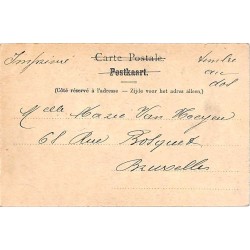 Imprimé
Carte Postale.
timbre
au
dos
Postkaart.
(Côté réservé à l'adresse — Zijde voor het adres alleen.)
Melle Marie Van
68 Rue Bosquet
Bruxelles